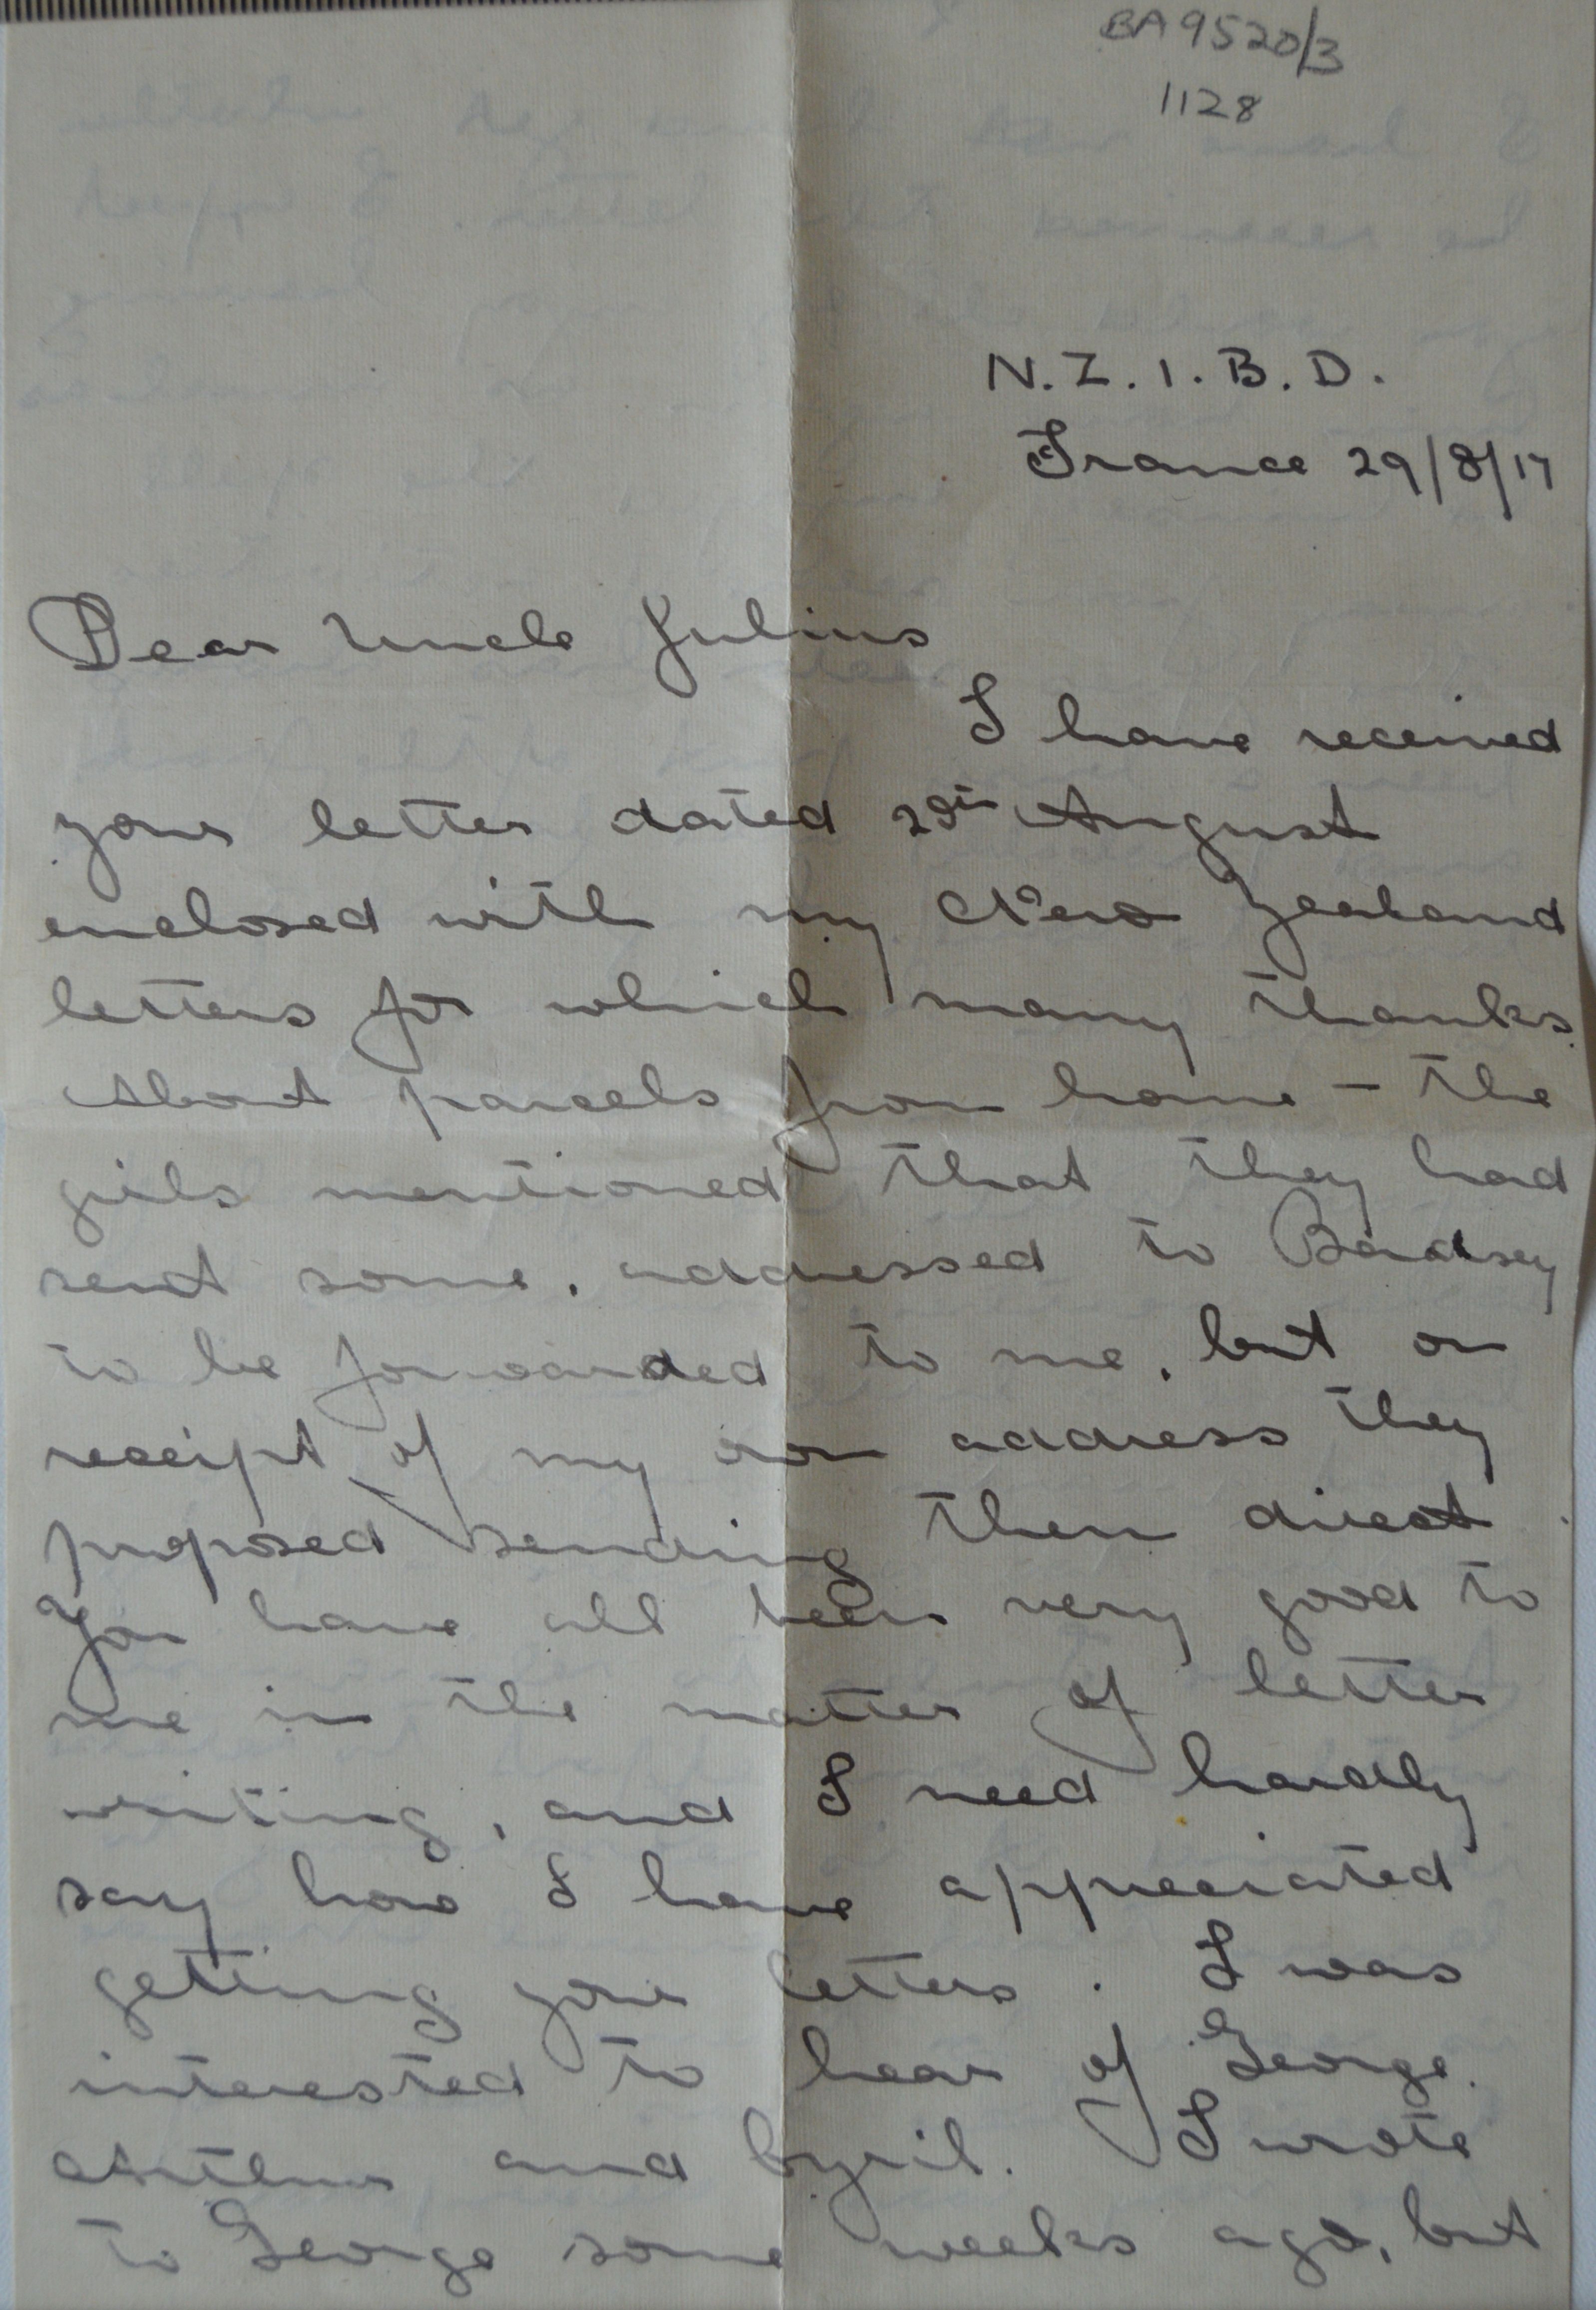 BA9520/3
1128
N.Z.I.B.D.
France 29/8/17
Dear Uncle Julius
I have received
your letter dated August
enclosed with my New Zealand
letters for which many thanks.
About parcels from home – the
girls mentioned that they had
sent some, addressed to Bardsey
to be forwarded to me, but on
receipt of my own address they
proposed sending them direct.
You have all been very good to
me in the matter of letter
writing, and I need hardly
say how I have appreciated
getting your letters. I was
interested to hear of George.
Arthur and Cyril. I wrote
to George some weeks ago, but